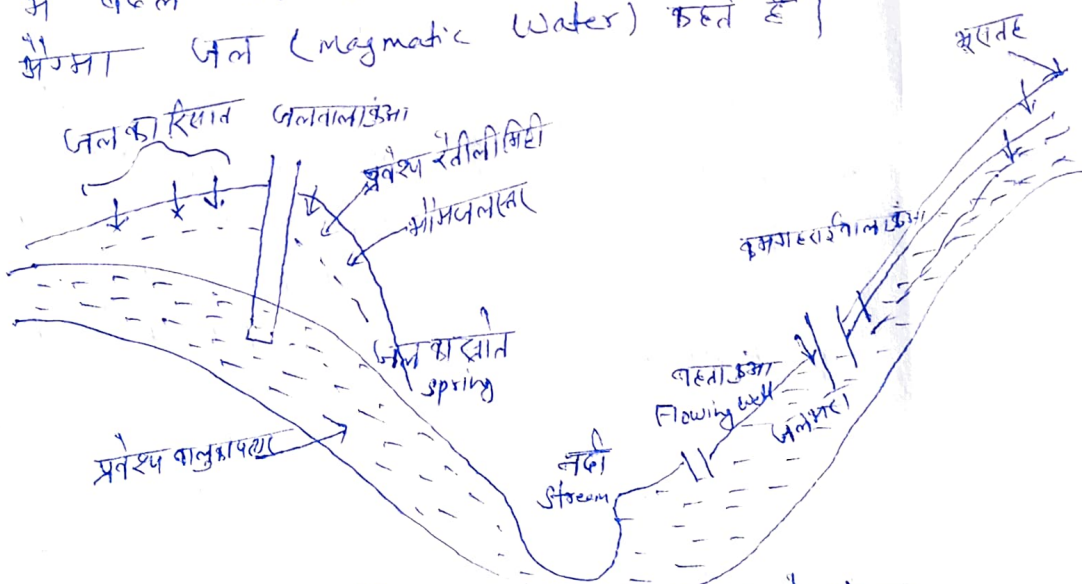 में बदल
मैग्मा जल (Magmatic Water) कहते हैं |
भूसतह
जल का रिसाव
जलवाला कुंआ
प्रवेश्य रेतीली मिट्टी
भौमजलस्तर
कम गहराई वाला कुंआ
जल का स्रोत
spring
बहता कुंआ
Flowing well
जलभरा
प्रवेश्य बालुका पत्थर
नदी
Stream